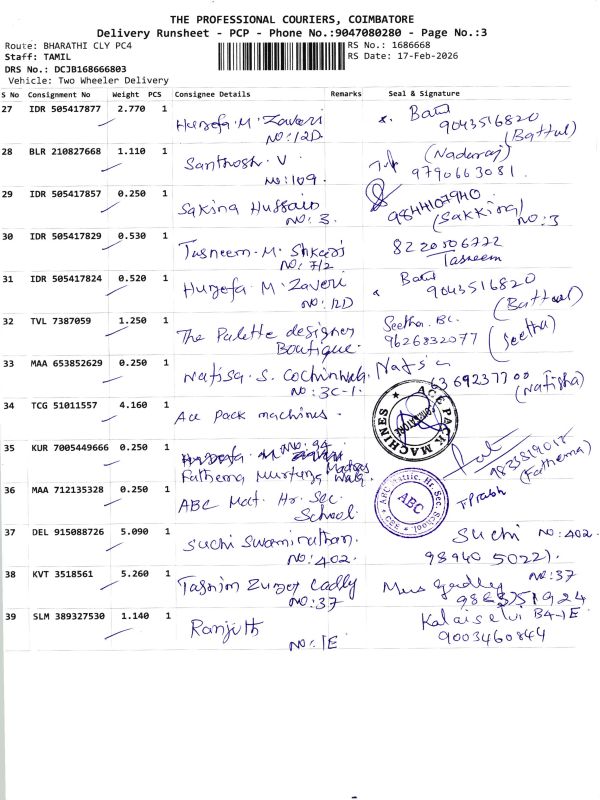 THE PROFESSIONAL COURIERS, COIMBATORE
Delivery Runsheet - PCP - Phone No.:9047080280 - Page No.:3
Route: BHARATHI CLY PC4
RS No.: 1686668
Staff: TAMIL
RS Date: 17-Feb-2026
DRS No.: DCJB168666803
Vehicle: Two Wheeler Delivery
S No Consignment No Weight PCS Consignee Details Remarks Seal & Signature
27 IDR 505417877 2.770 1 Huzefa.M. Zaveri
NO:12D
9043516820
(Battul)
28 BLR 210827668 1.110 1 Santhosh. V
NO:109.
(Nadaraj)
9790663081.
29 IDR 505417857 0.250 1 Sakina Hussain
NO: 3.
9844107940
(Sakkina) NO:3
30 IDR 505417829 0.530 1 Tasneem. M.
NO: 7/2
8220506722
Tasneem
31 IDR 505417824 0.520 1 Huzefa M Zaveri
NO: 12D
9043516820
(Battul)
32 TVL 7387059 1.250 1 The Palette designer
Boutique.
Seetha. BC.
9626832077 (Seetha)
33 MAA 653852629 0.250 1 Nafisa. S. Cochinwala.
NO: 3C-1.
(Nafisha)
34 TCG 51011557 4.160 1 Ace Pack machines.
ACE PACK MACHINES
35 KUR 7005449666 0.250 1
NO: 94
Fathema Murtuza
(Fathema)
36 MAA 712135328 0.250 1 ABC Mat. Hr. Sec.
School.
ABC Matric. Hr. Sec. School
ABC
37 DEL 915088726 5.090 1 Suchi Swaminathan.
NO:402.
Suchi NO:402.
98940 50221.
38 KVT 3518561 5.260 1 Zuzer Cadly
NO:37
NO:37
39 SLM 389327530 1.140 1 Ranjith
NO: 1E
Kalaiselvi
9003460844